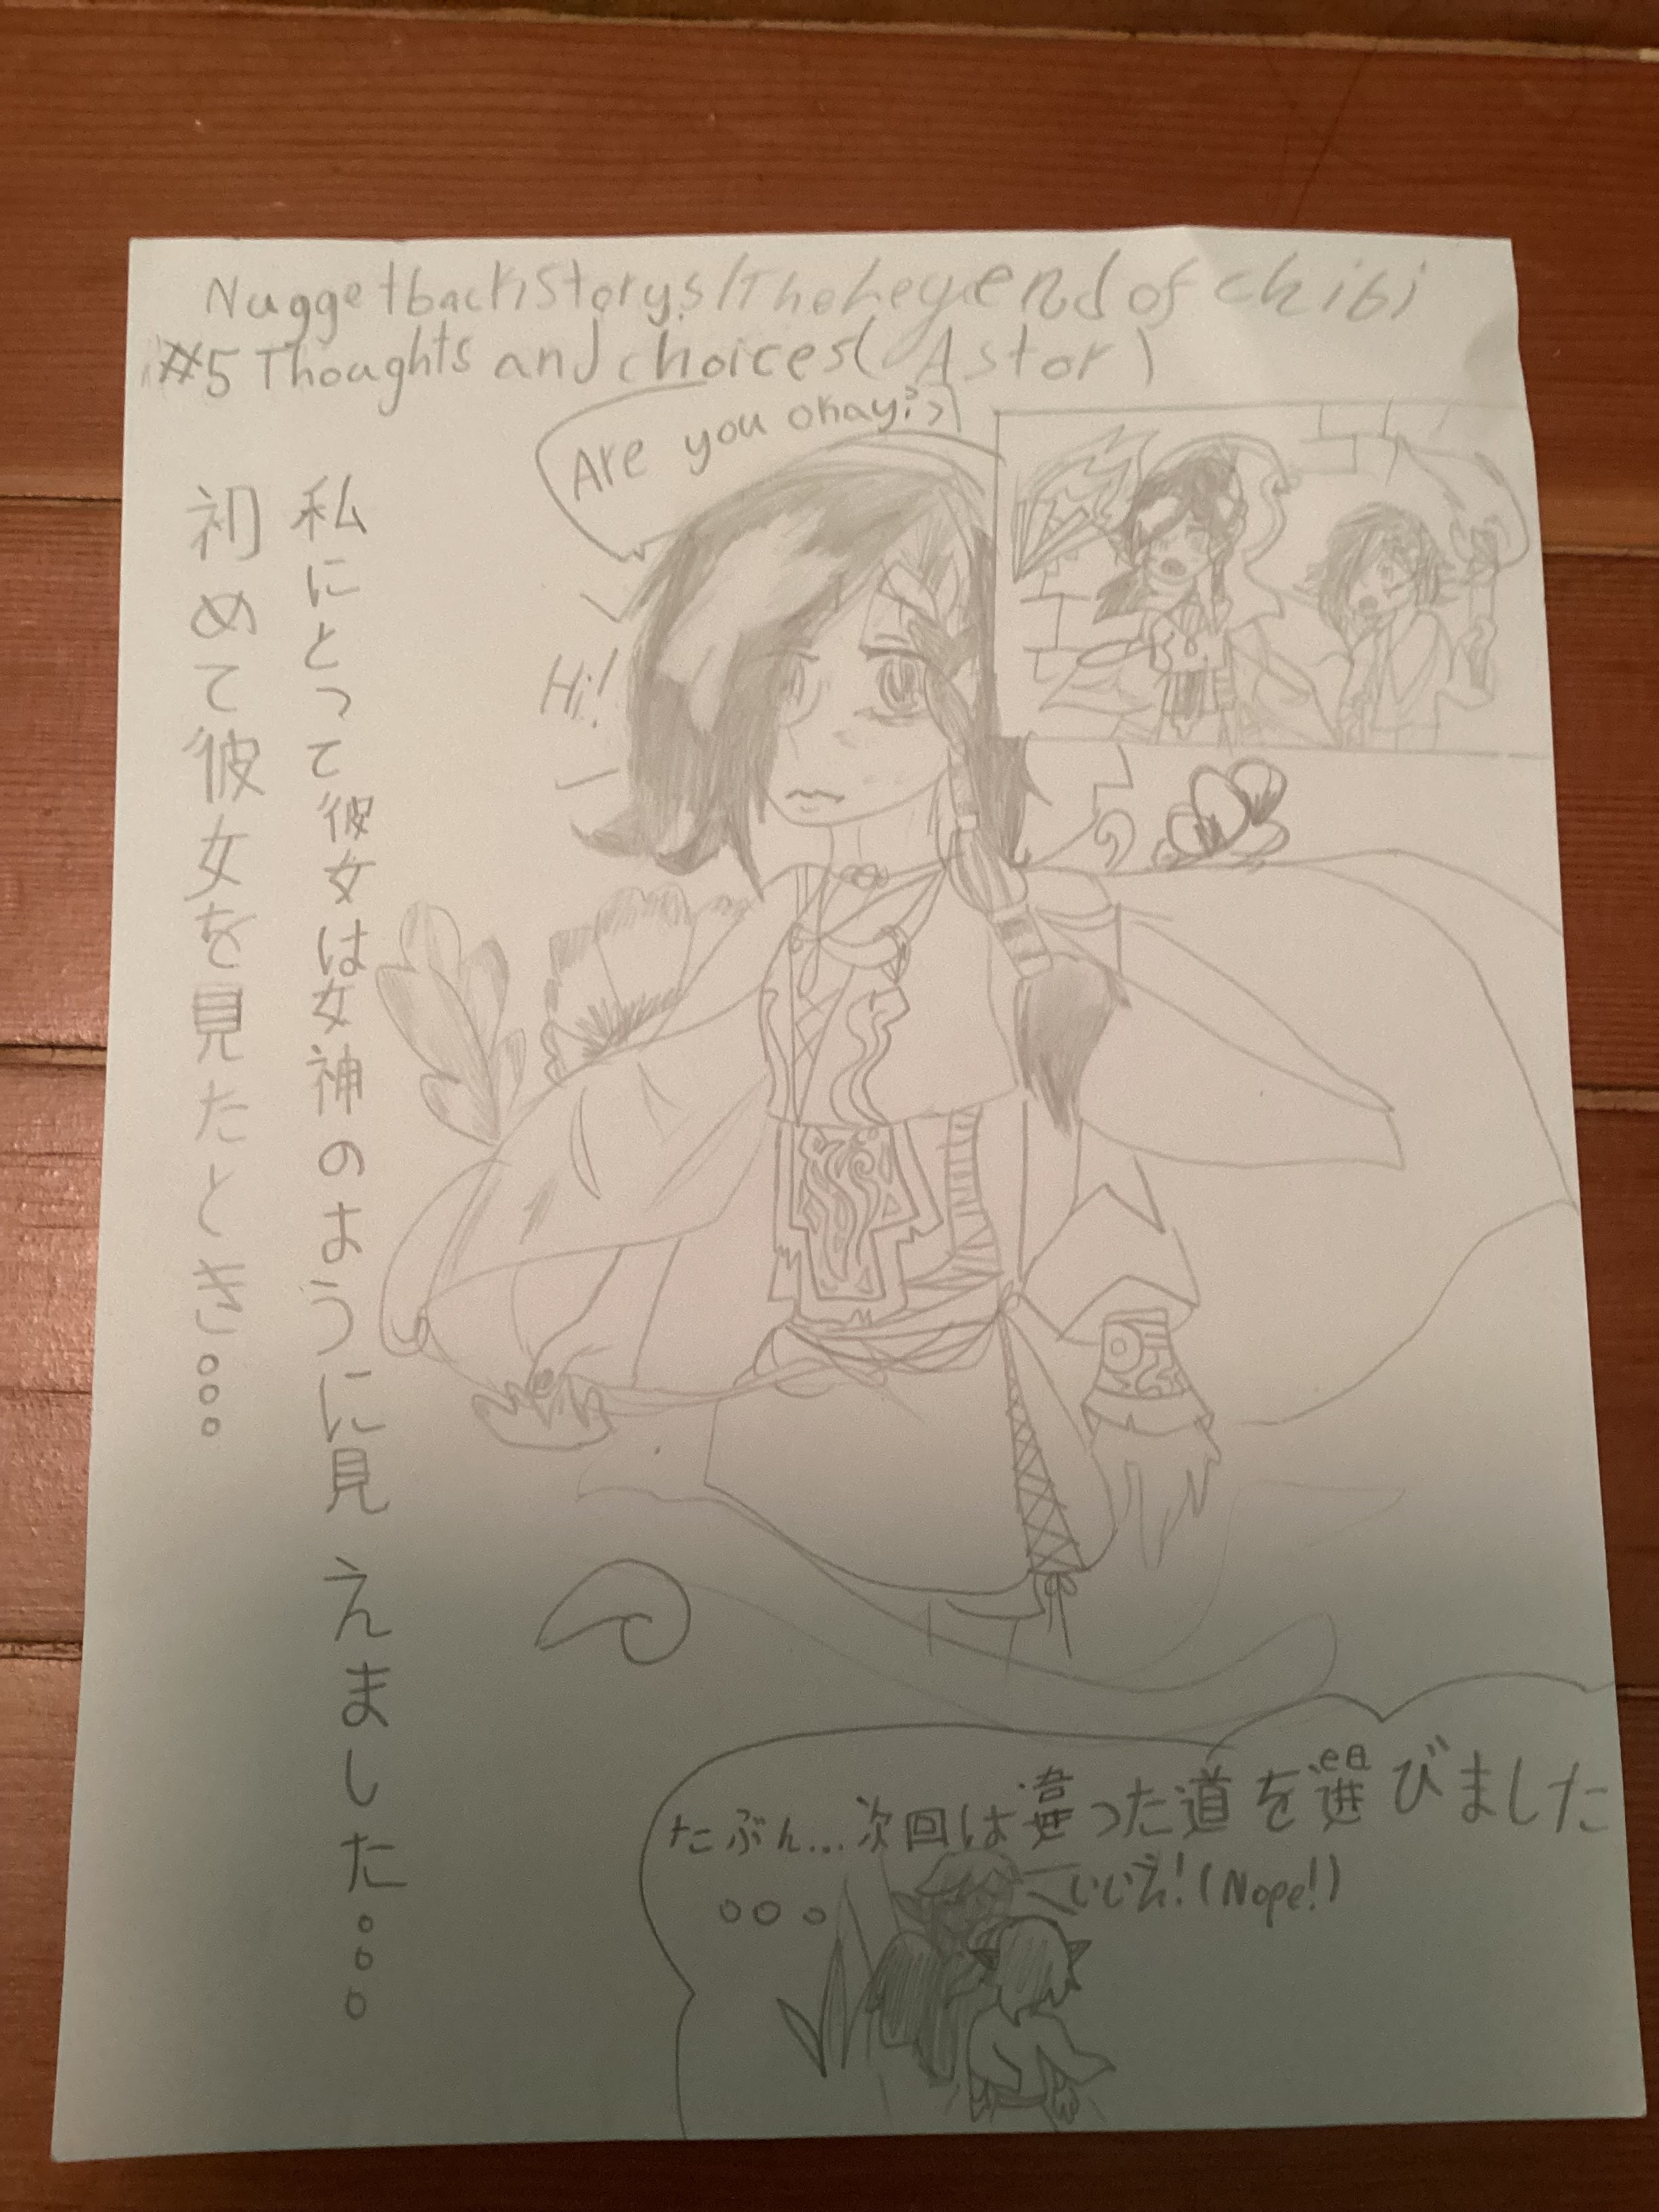 Nugget backstorys/The Legend of chibi
#5 Thoughts and choices (Astor)
Are you okay?>
Hi!
私にとって彼女は女神のように見えました...
初めて彼女を見たとき...
たぶん...次回は違った道を選びました
...
いいえ!(Nope!)